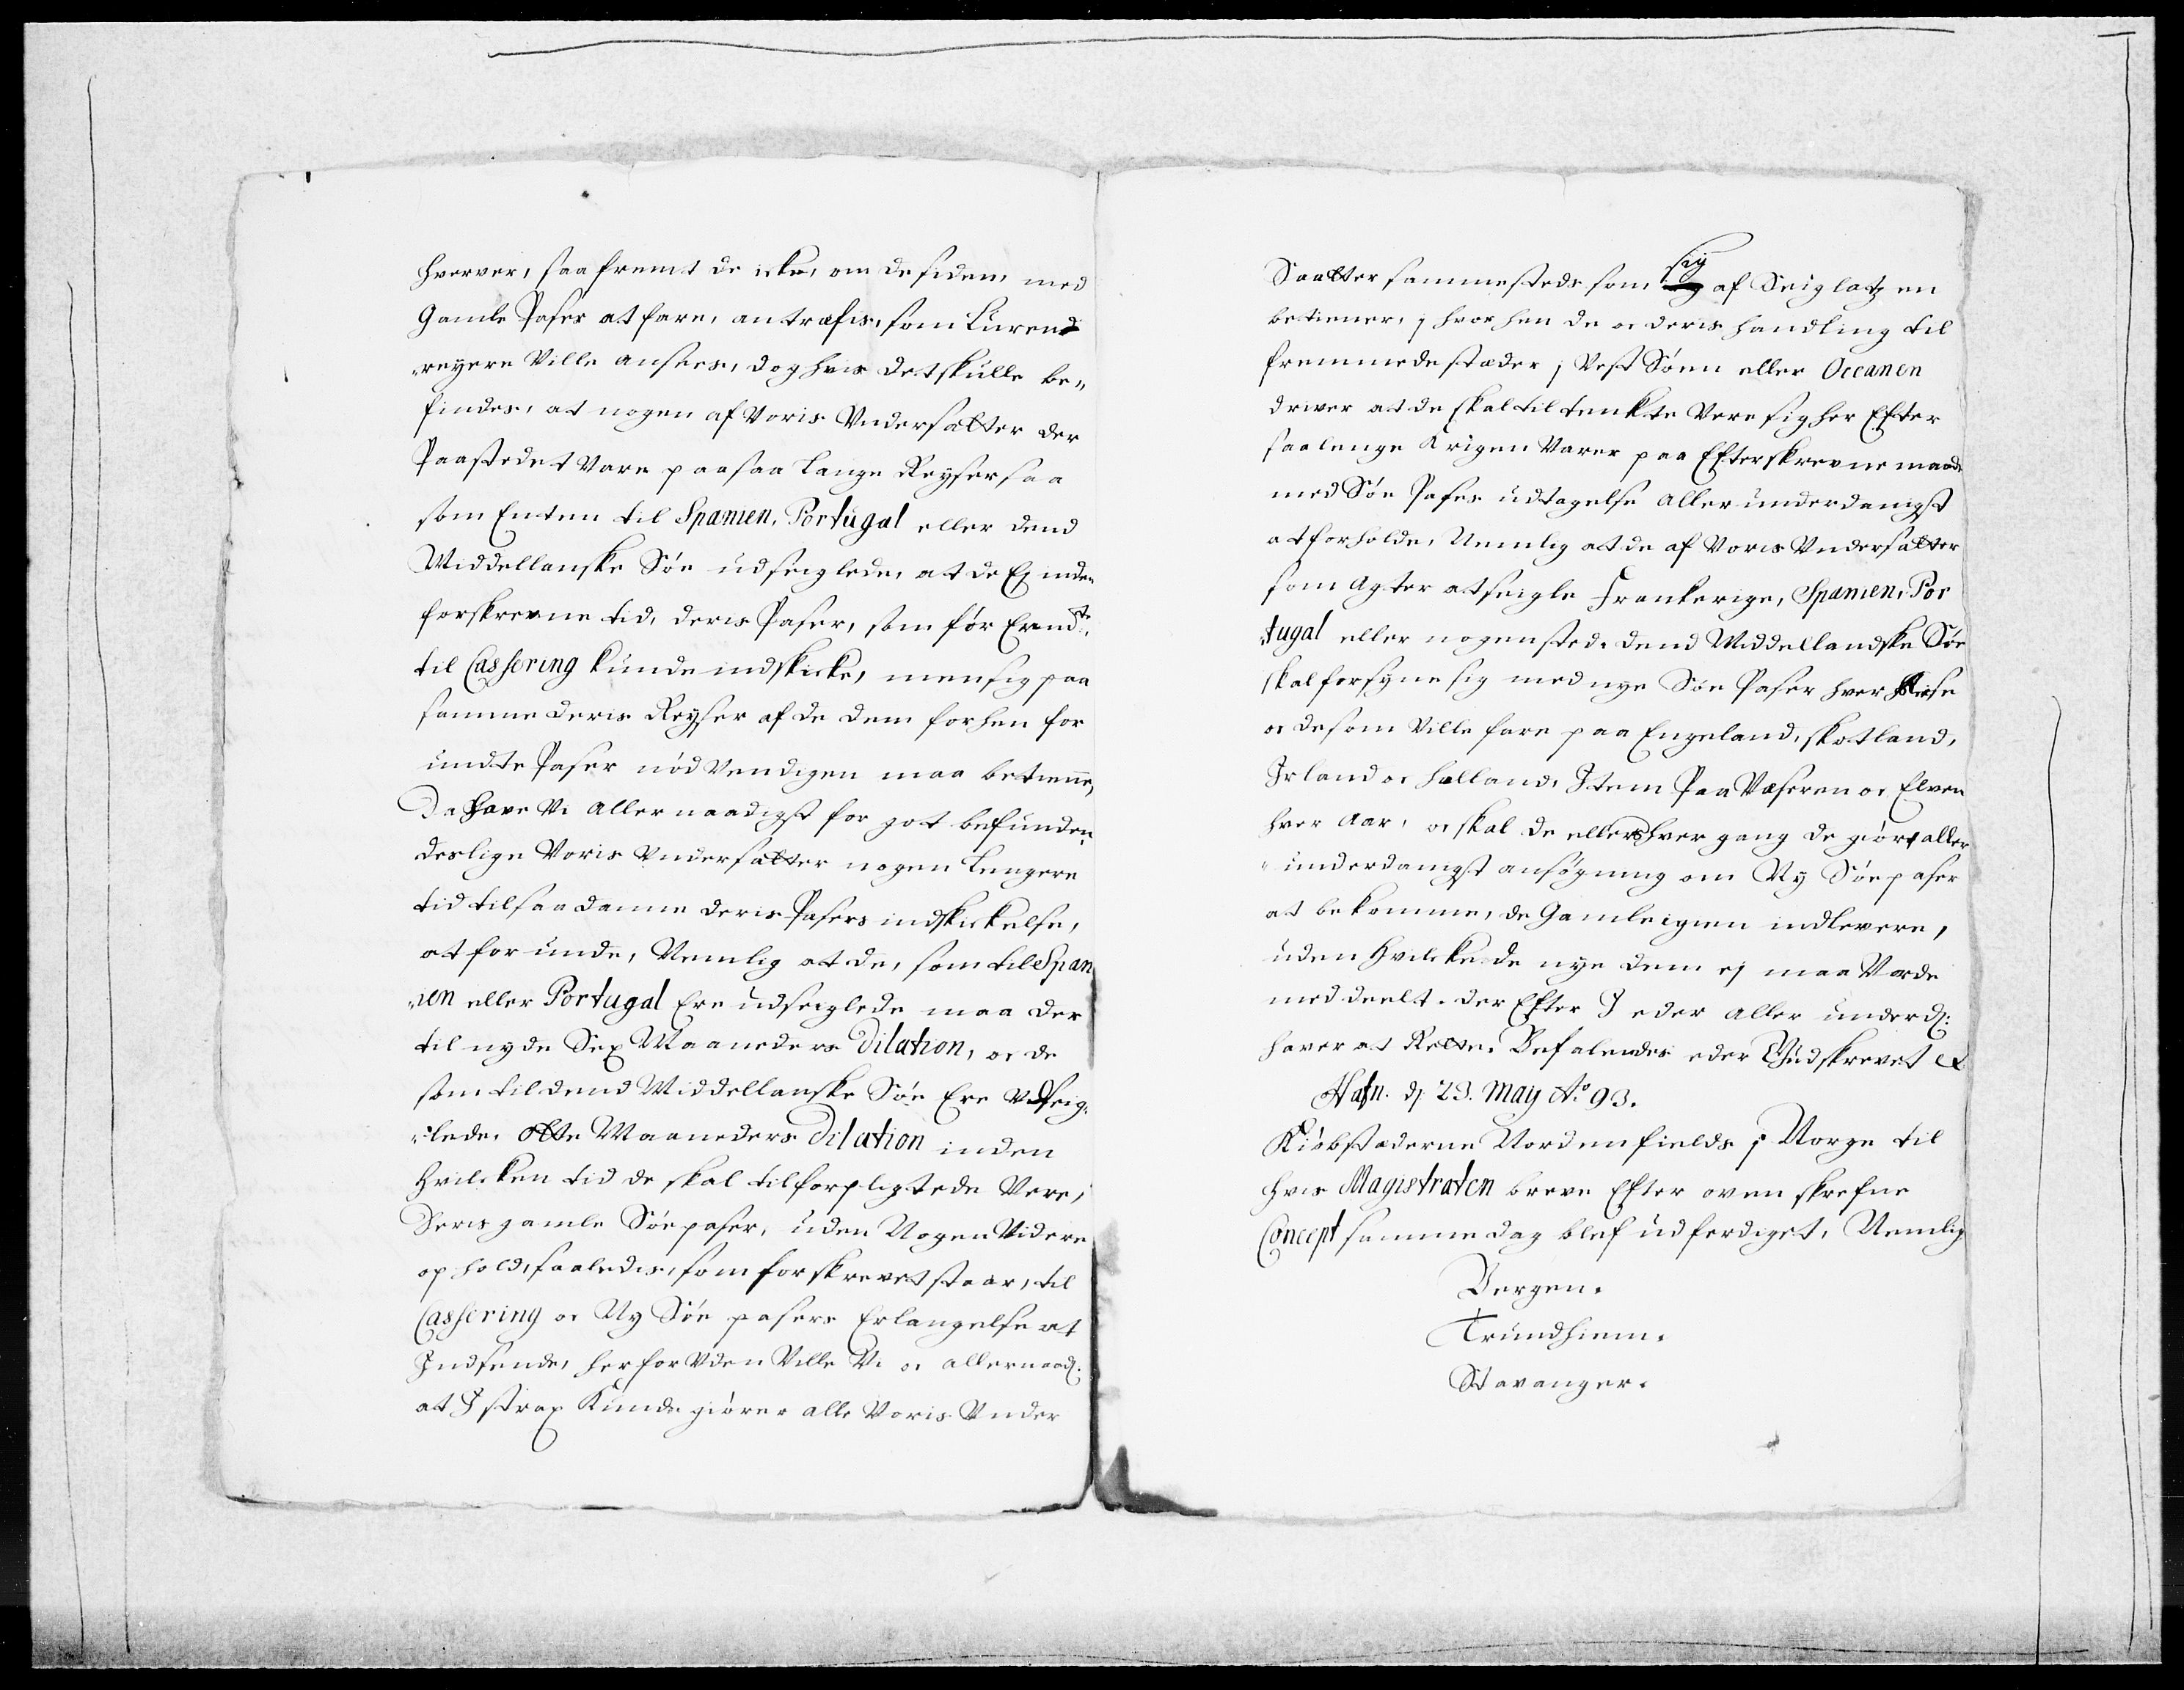 hverver, saafremt de icke, om de siden, med
Gamle Paser at fare, antrefis, som Lurend
„reyere Ville ansees, dog hvis det skulle be„
findes, at nogen af Voris Undersatter der
Paastedet Vare paa saa lange Reyser saa
som Enten til Spanien, Portugal eller dend
Middellanske Søe udseiglede, at de Ej inden
forskrevne tid, deris Paser, som før Ermdte
til Cassering kunde indskicke, men sig paa
samme deris Reyser af de dem forhen for
undte Paser nødvendigen maa betiene,
Da have Vi allernaadigst for got befunden,
deslige Voris Undersatter nogen lengere
tid til saadanne deris Pasers indskickelse,
at forunde, Nemlig at de, som til Span
„ien eller Portugal Ere udseiglede maa der
til nyde Sex Maaneders Dilation, oc de
som til dend Middellanske Søe Ere Udseig„
„lede, Otte Maaneders Dilation inden
hvilcken tid de skal tilforpligtede Vere,
Deris gamle Søepaser, uden Nogen Videre
ophold, saaledis, som forskrevet staar, til
Cassering oc Ny Søe pasers Erlangelse at
Indsende, herforuden Ville Vi oc allernaad:
at I strax Kundegiøre alle Voris Under
Saatter sammesteds som sig af Seiglatzen
betiener, j hvorhen de oc deris handling til
fremmede stæder j Vest Søen eller Occanen
driver at de skal tiltenckte Vere sig her Efter
saalenge Krigen Varer paa Efterskrevne maade
med Søe Pases udtagelse allerunderdanigst
at forholde, Nemlig at de af Voris Undersatter
som agter at seigle Franckerige, Spanien, Por
„tugal eller nogensteds dend Middellandske Søe
skal forsyne sig med nye Søe Paser hver Reise
oc de som Ville fare paa Engeland, Skotland,
Irland oc Holland, Item Paa Væseren oc Elven
hver Aar, oc skal de ellers hver gang de giøre aller
„underdanigst ansøgning om Ny Søe paser
at bekomme, de Gamle igien indlevere,
uden hvilcke de nye dem ej maa Vorde
meddeelt. Der Efter I eder allerunderd:
haver at Rette. Befalendes eder Gud skrevet &
Hafn. dj 23. May Ao 93.
Kiøbstæderne Nordenfields j Norge til
hvis Magistraten breve Efter ovenskrefne
Concept samme dag blef udferdiget, Nemlig
Bergen.
Trundhiem.
Stavanger.